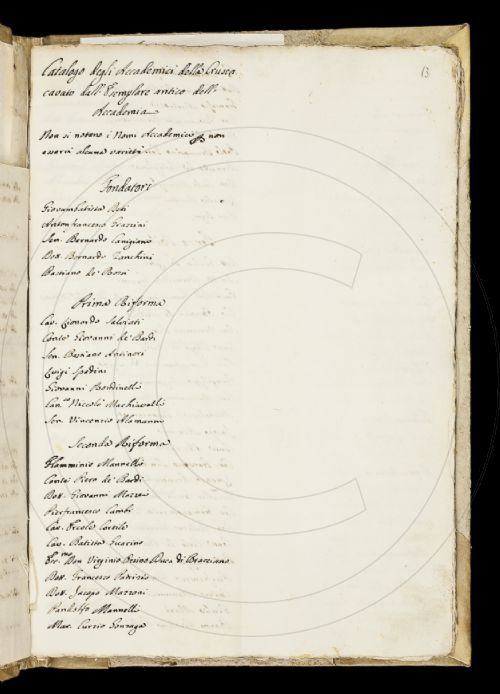 13
Catalogo degli Accademici della Crusca
cavato dall'Esemplare antico dell'
Accademia
Non si notano i Nomi Accademici non
essersi alcuna varietà
Fondatori
Giovambatista Deti
Antonfrancesco Grazzini
Sen. Bernardo Canigiani
Dot. Bernardo Zanchini
Bastiano de' Rossi
Prima Riforma
Cav. Lionardo Salviati
Conte Giovanni de' Bardi
Sen. Bastiano Antinori
Luigi Spadini
Giovanni Rondinelli
Can.co Niccolò Machiavelli
Sen. Vincenzio Alamanni
Seconda Riforma
Flamminio Mannelli
Conte Piero de' Bardi
Dot. Giovanni Mazzei
Pierfrancesco Cambi
Cav. Ercole Cortile
Cav. Batista Guarino
Ecc.mo Don Virginio Orsino Duca di Bracciano
Dot. Francesco Patrizio
Dot. Jacopo Mazzoni
Pandolfo Mannelli
Mar. Curzio Gonzaga